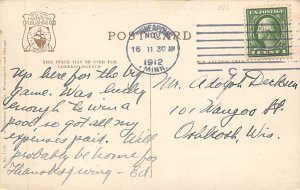 POSTCARD
THIS SPACE MAY BE USED FOR
CORRESPONDENCE
MINNEAPOLIS
NOV
16 11 30 AM
1912
MINN.
Up here for the big
game. Was lucky
enough to win a
pool so got all my
expenses paid. Will
probably be home for
Thanksgiving - Ed.
Mr. Adolph
101 St.
Oshkosh, Wis.